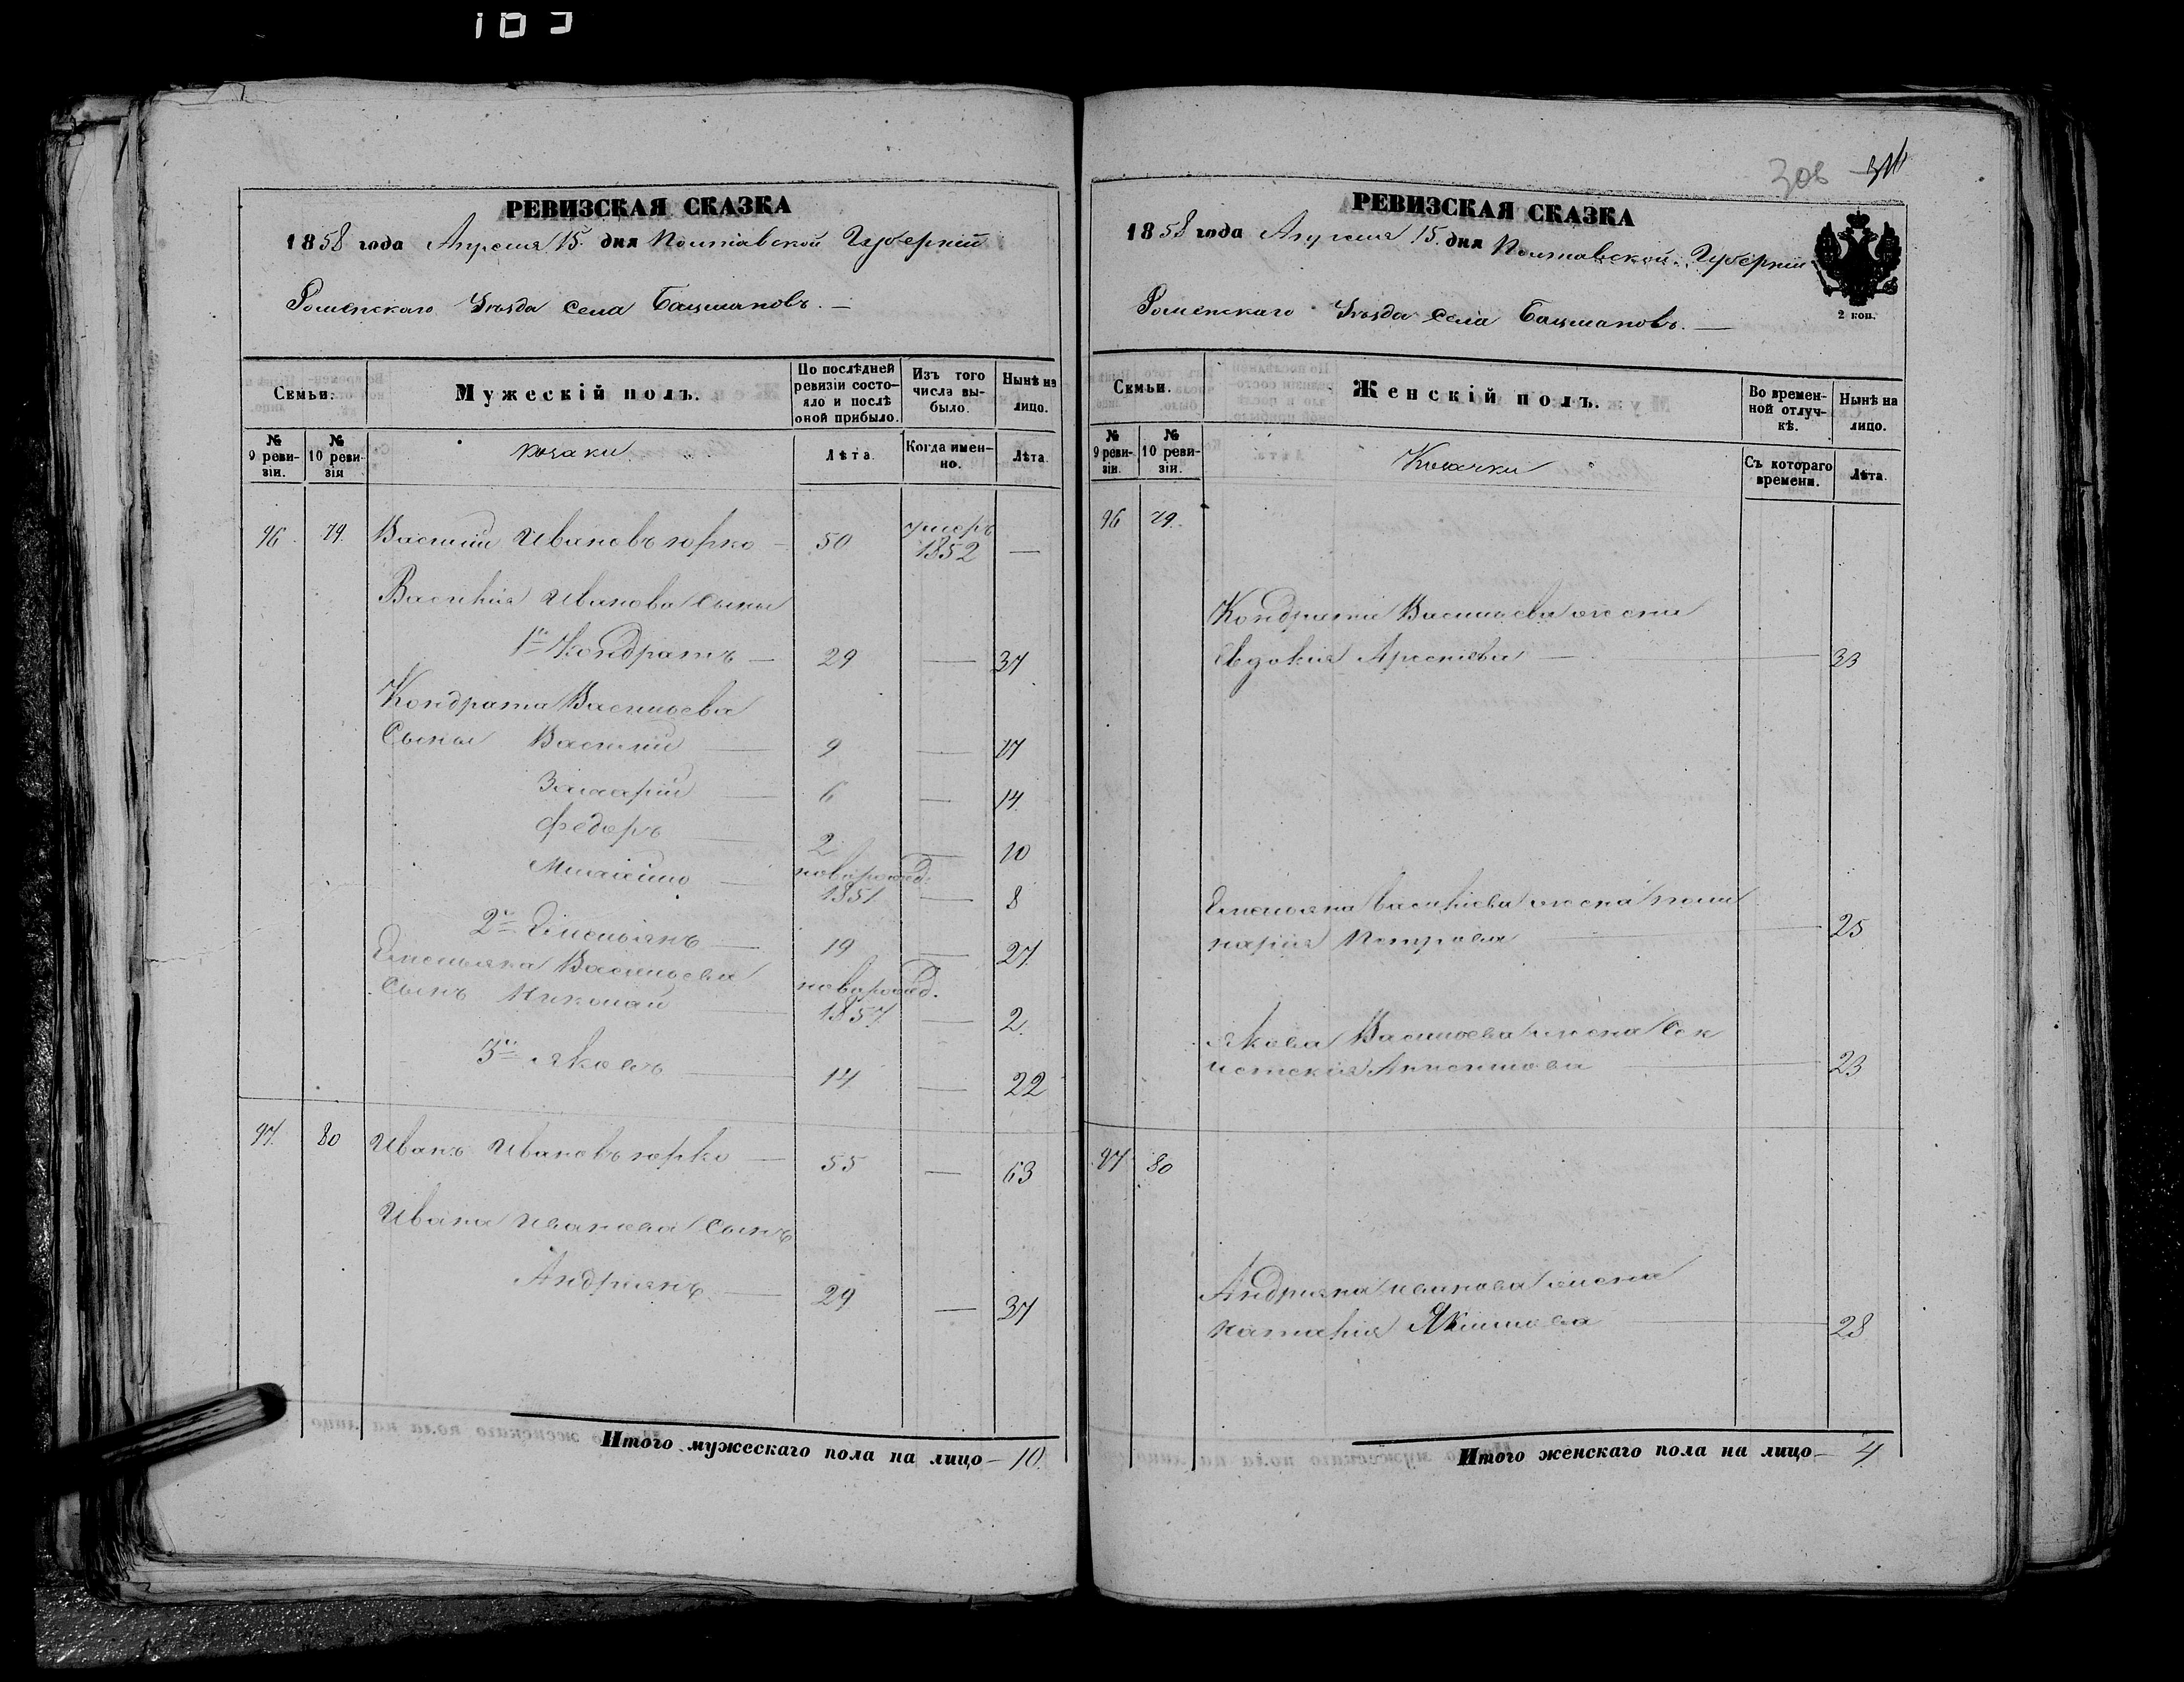 308
РЕВИЗСКАЯ СКАЗКА
1858 года Апреля 15. дня Полтавской Губерніи
Роменскаго Уѣзда села Бацмановъ. —
Семьи.
Мужескій полъ.
По послѣдней ревизіи состояло и послѣ оной прибыло.
Изъ того числа выбыло.
Нынѣ на лицо.
№ 9 ревизіи.
№ 10 ревизія
козаки
Лѣта.
Когда именно.
Лѣта.
96. 79. Василий Ивановъ Юрко — 50 умеръ 1852 —
Василия Иванова сыны
1й Кондратъ — 29 — 37
Кондрата Васильева
Сыны Василий — 9 — 17
Захарий — 6 — 14.
Федоръ — 2 — 10
новорожд. 1851 — 8
2й Емельянъ — 19 — 27.
Емельяна Васильева
сынъ Николай — новорожд. 1857. — 2.
3й Яковъ — 14 — 22
97. 80 Иванъ Ивановъ Юрко — 55 — 63
Ивана Иванова сынъ
Андриянъ — 29 — 37
Итого мужескаго пола на лицо — 10.
РЕВИЗСКАЯ СКАЗКА
1858 года Апреля 15. дня Полтавской Губерніи
Роменскаго Уѣзда села Бацмановъ. —
2 коп.
Семьи.
Женскій полъ.
Во временной отлучкѣ.
Нынѣ на лицо.
№ 9 ревизіи.
№ 10 ревизіи.
Козачки
Съ котораго времени.
Лѣта.
96 79.
Кондрата Васильева жена
Евдокия — 33
Емельяна Василиева жена
Петрова — 25
Якова Васильева жена
— 23
97 80
Андрияна Иванова жена
Наталия Якимова — 28
Итого женскаго пола на лицо — 4.